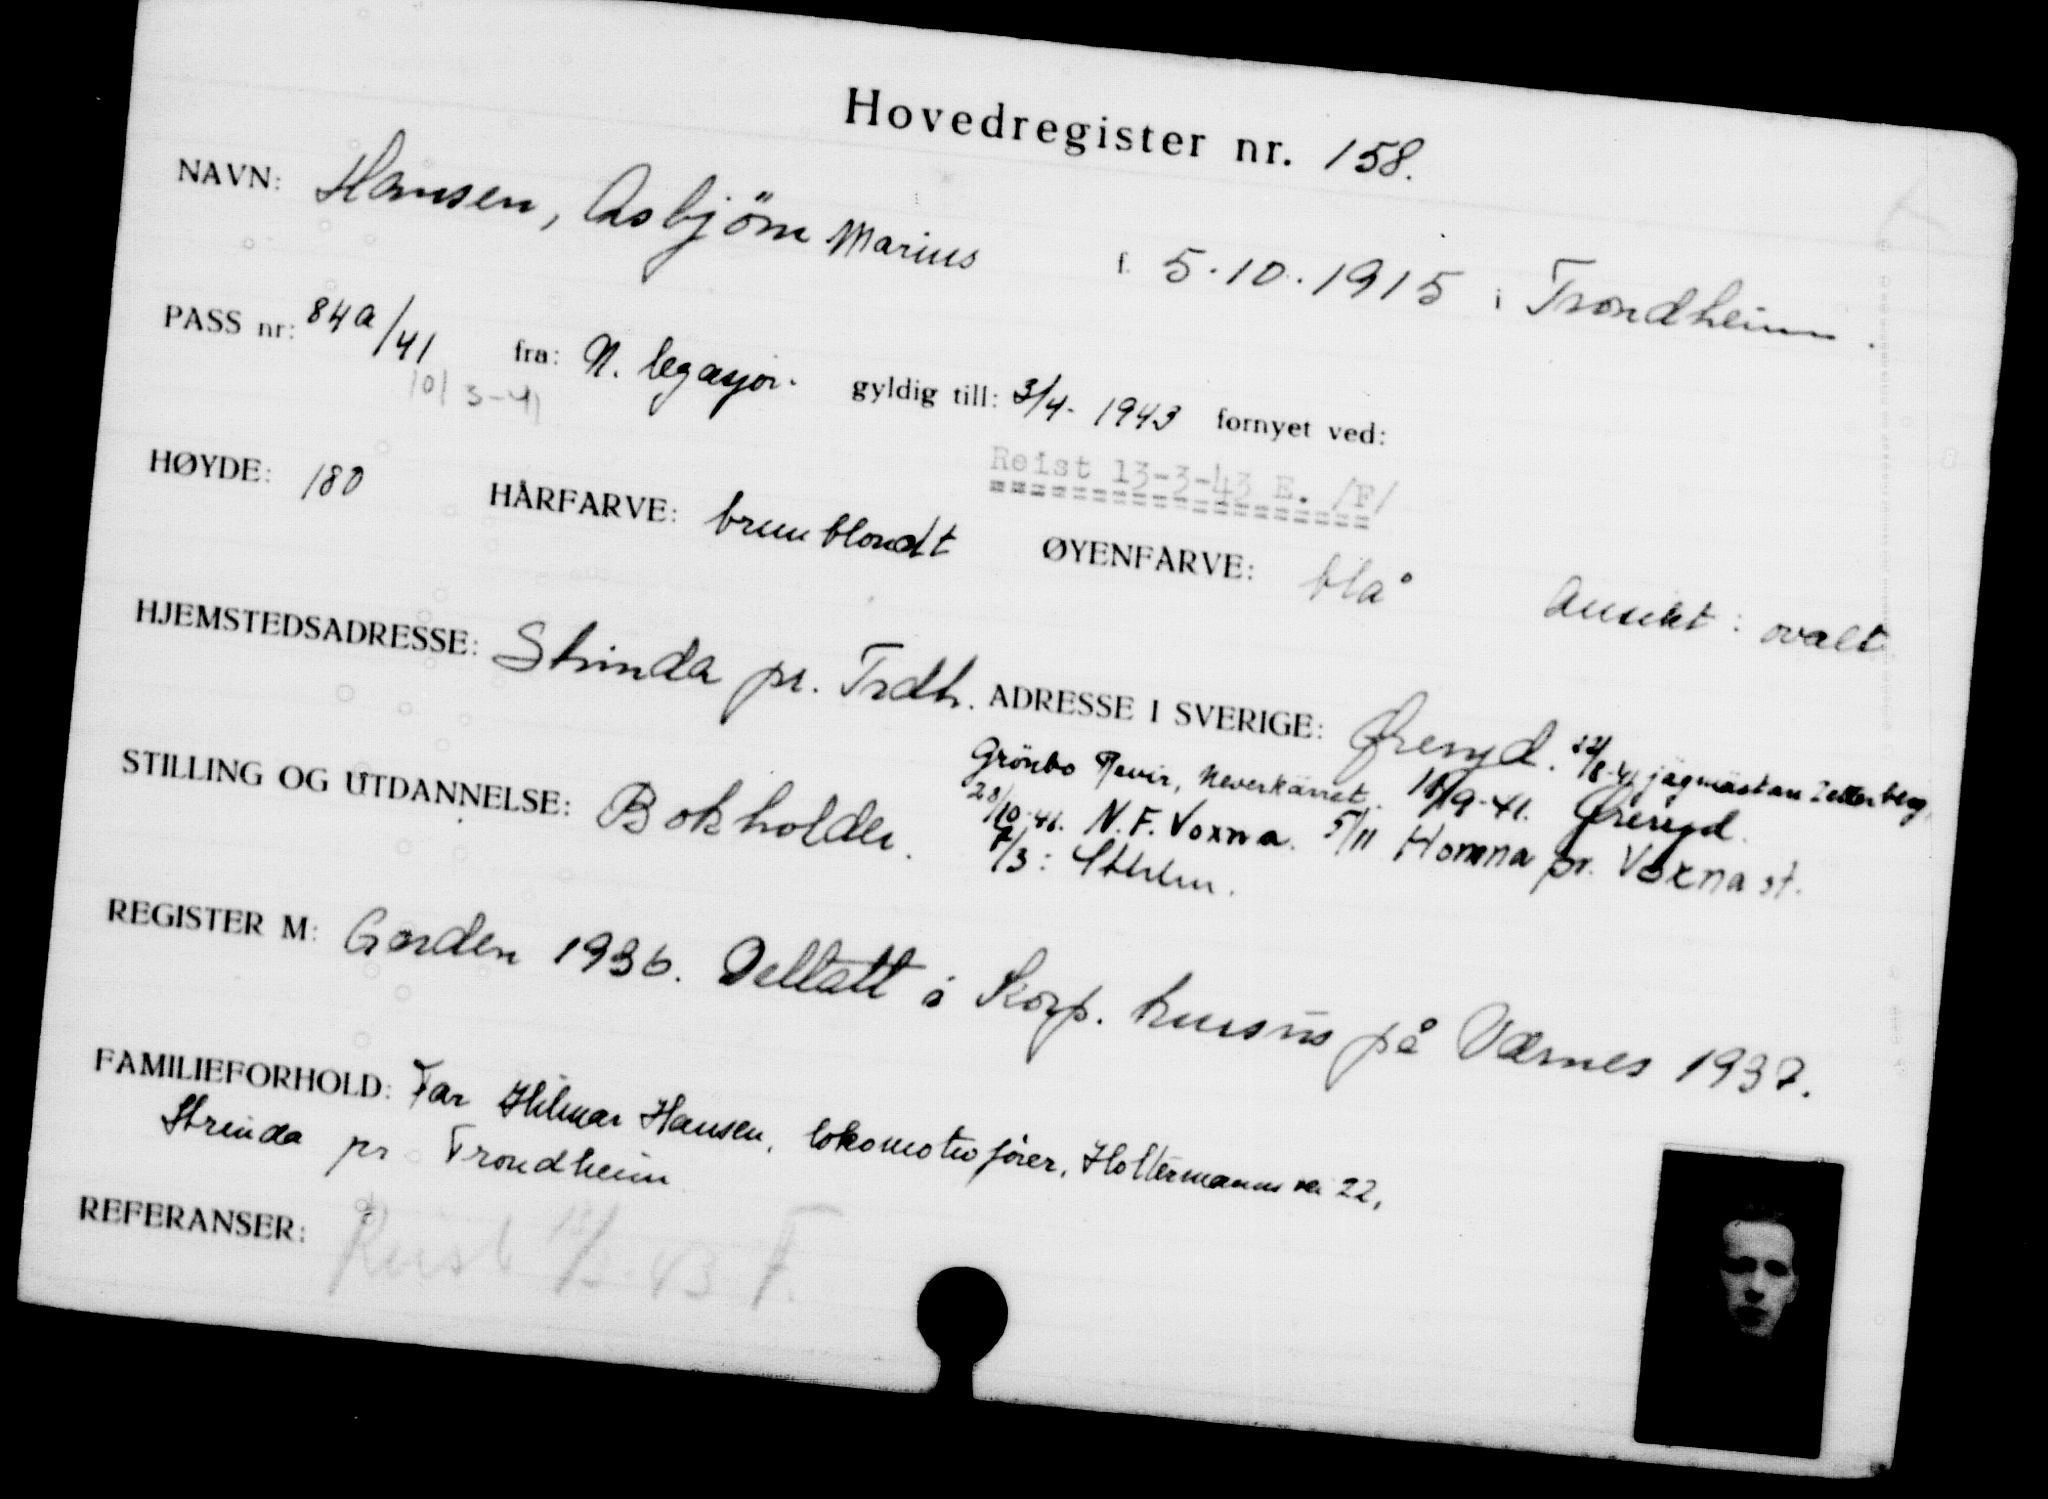 Hovedregister nr. 158.
NAVN: Hansen, Asbjörn Marius f. 5.10.1915 i Trondheim.
PASS nr: 84a/41 fra: N. legasjon. gyldig till: 3/4- 1943 fornyet ved:
10/3-41
Reist 13-3-43 E. /F/
HØYDE: 180 HÅRFARVE: brunblondt ØYENFARVE: blå Ansikt: ovalt
HJEMSTEDSADRESSE: Strinda pr. Trdh. ADRESSE I SVERIGE: Øreryd. 22/8-41 jägmästare Zetterberg,
Grönbo Revir, Neverkärret. 18/9-41. Øreryd.
28/10-41. N.F. Voxna. 5/11 Homna pr. Voxna st.
7/3: Sthlm.
STILLING OG UTDANNELSE: Bokholder.
REGISTER M: Garden 1936. Deltatt i Korp. kursus på Værnes 1937.
FAMILIEFORHOLD: Far Hilmar Hansen, lokomotivfører, Holtermanns vei 22,
Strinda pr Trondheim
REFERANSER: Reist 13/3-43 F.